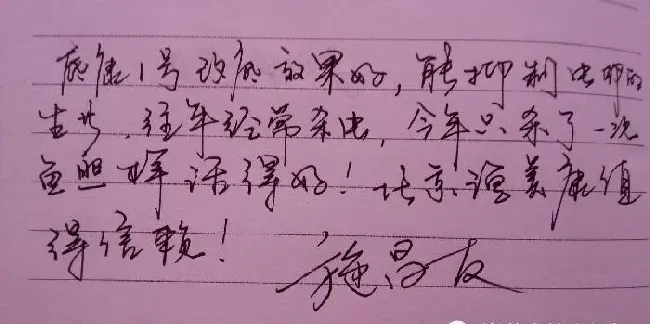 底康1号改底效果好，能抑制虫卵的
生长，往年经常杀虫，今年只杀了一次
鱼胆 保活得好！北京渔美康值
得信赖！
施昌友